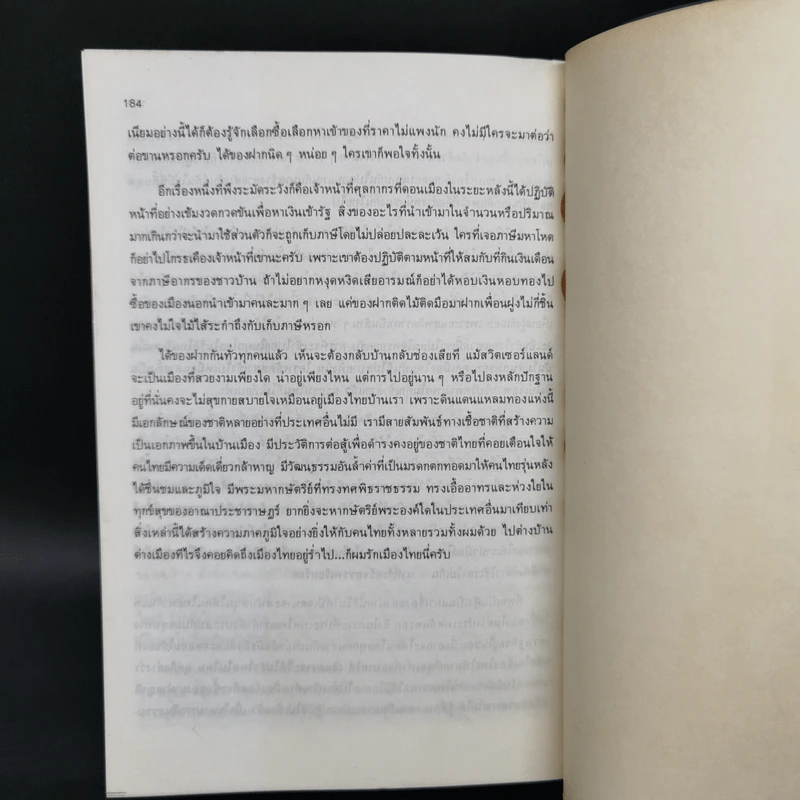 184
เนียมอย่างนี้ได้ก็ต้องรู้จักเลือกซื้อเลือกหาเข้าของที่ราคาไม่แพงนัก คงไม่มีใครจะมาต่อว่า
ต่อขานหรอกครับ ได้ของฝากนิด ๆ หน่อย ๆ ใครเขาก็พอใจทั้งนั้น
อีกเรื่องหนึ่งที่พึงระมัดระวังก็คือเจ้าหน้าที่ศุลกากรที่ดอนเมืองในระยะหลังนี้ได้ปฏิบัติ
หน้าที่อย่างเข้มงวดกวดขันเพื่อหาเงินเข้ารัฐ สิ่งของอะไรที่นำเข้ามาในจำนวนหรือปริมาณ
มากเกินกว่าจะนำมาใช้ส่วนตัวก็จะถูกเก็บภาษีโดยไม่ปล่อยปละละเว้น ใครที่เจอภาษีมหาโหด
ก็อย่าไปโกรธเคืองเจ้าหน้าที่เขานะครับ เพราะเขาต้องปฏิบัติตามหน้าที่ให้สมกับที่กินเงินเดือน
จากภาษีอากรของชาวบ้าน ถ้าไม่อยากหงุดหงิดเสียอารมณ์ก็อย่าได้หอบเงินหอบทองไป
ซื้อของเมืองนอกนำเข้ามาคนละมาก ๆ เลย แค่ของฝากติดไม้ติดมือมาฝากเพื่อนฝูงไม่กี่ชิ้น
เขาคงไม่ใจไม้ไส้ระกำถึงกับเก็บภาษีหรอก
ได้ของฝากกันทั่วทุกคนแล้ว เห็นจะต้องกลับบ้านกลับช่องเสียที แม้สวิตเซอร์แลนด์
จะเป็นเมืองที่สวยงามเพียงใด น่าอยู่เพียงไหน แต่การไปอยู่นาน ๆ หรือไปลงหลักปักฐาน
อยู่ที่นั่นคงจะไม่สุขกายสบายใจเหมือนอยู่เมืองไทยบ้านเรา เพราะดินแดนแหลมทองแห่งนี้
มีเอกลักษณ์ของชาติหลายอย่างที่ประเทศอื่นไม่มี เรามีสายสัมพันธ์ทางเชื้อชาติที่สร้างความ
เป็นเอกภาพขึ้นในบ้านเมือง มีประวัติการต่อสู้เพื่อดำรงคงอยู่ของชาติไทยที่คอยเตือนใจให้
คนไทยมีความเด็ดเดี่ยวกล้าหาญ มีวัฒนธรรมอันล้ำค่าที่เป็นมรดกตกทอดมาให้คนไทยรุ่นหลัง
ได้ชื่นชมและภูมิใจ มีพระมหากษัตริย์ที่ทรงทศพิธราชธรรม ทรงเอื้ออาทรและห่วงใยใน
ทุกข์สุขของอาณาประชาราษฎร์ ยากยิ่งจะหากษัตริย์พระองค์ใดในประเทศอื่นมาเทียบเท่า
สิ่งเหล่านี้ได้สร้างความภาคภูมิใจอย่างยิ่งให้กับคนไทยทั้งหลายรวมทั้งผมด้วย ไปต่างบ้าน
ต่างเมืองทีไรจึงคอยคิดถึงเมืองไทยอยู่ร่ำไป...ก็ผมรักเมืองไทยนี่ครับ